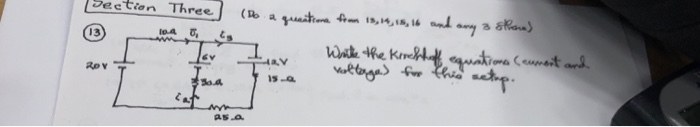 Section Three (Do 2 questions from 13, 14, 15, 16 and any 3 others)
(13)
10Ω i₁ i₃
20V 6V 12V
30Ω 15Ω
i₂
25Ω
Write the Kirchhoff equations (current and
voltage) for this setup.